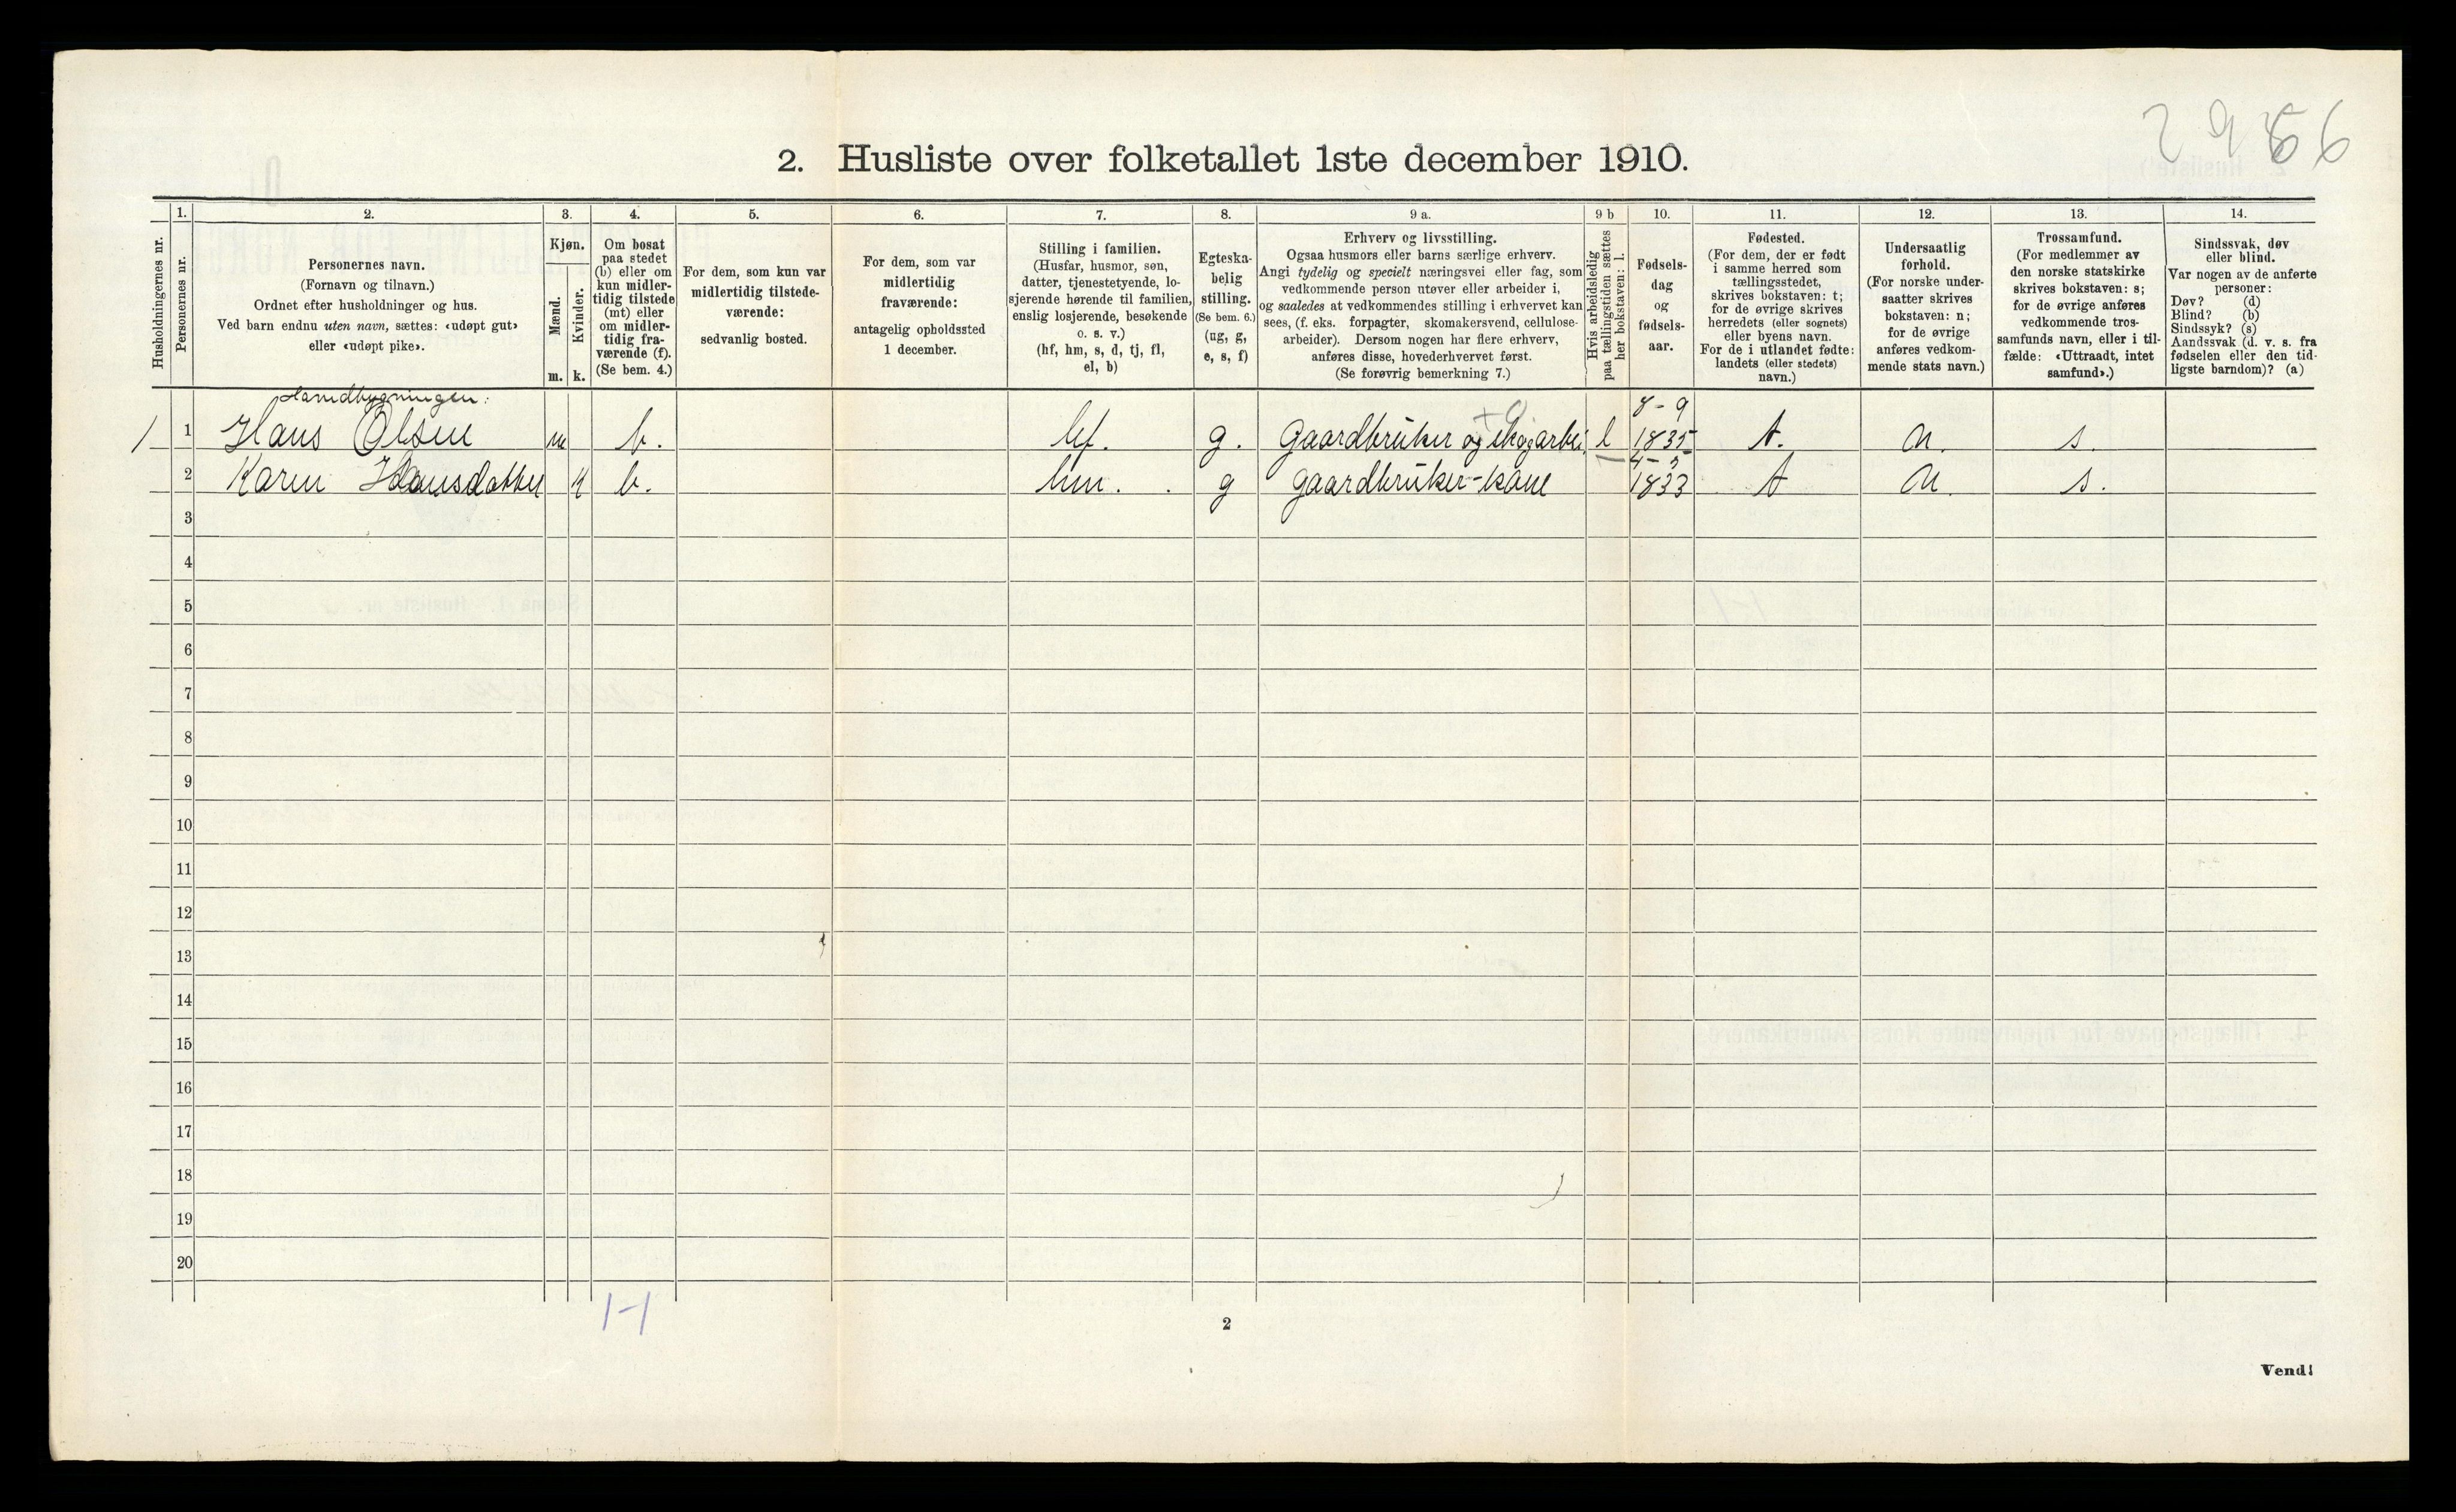 2956
2. Husliste over folketallet 1ste december 1910.
Husholdningernes nr.
1.
Personernes nr.
2.
Personernes navn.
(Fornavn og tilnavn.)
Ordnet efter husholdninger og hus.
Ved barn endnu uten navn, sættes: «udøpt gut»
eller «udøpt pike».
3.
Kjøn.
Mænd.
m.
Kvinder.
k.
4.
Om bosat
paa stedet
(b) eller om
kun midler-
tidig tilstede
(mt) eller
om midler-
tidig fra-
værende (f).
(Se bem. 4.)
5.
For dem, som kun var
midlertidig tilstede-
værende:
sedvanlig bosted.
6.
For dem, som var
midlertidig
fraværende:
antagelig opholdssted
1 december.
7.
Stilling i familien.
(Husfar, husmor, søn,
datter, tjenestetyende, lo-
sjerende hørende til familien,
enslig losjerende, besøkende
o. s. v.)
(hf, hm, s, d, tj, fl,
el, b)
8.
Egteska-
belig
stilling.
(Se bem. 6.)
(ug, g,
e, s, f)
9 a.
Erhverv og livsstilling.
Ogsaa husmors eller barns særlige erhverv.
Angi tydelig og specielt næringsvei eller fag, som
vedkommende person utøver eller arbeider i,
og saaledes at vedkommendes stilling i erhvervet kan
sees, (f. eks. forpagter, skomakersvend, cellulose-
arbeider). Dersom nogen har flere erhverv,
anføres disse, hovederhvervet først.
(Se forøvrig bemerkning 7.)
9 b
Hvis arbeidsledig
paa tællingstiden sættes
her bokstaven: l.
10.
Fødsels-
dag
og
fødsels-
aar.
11.
Fødested.
(For dem, der er født
i samme herred som
tællingsstedet,
skrives bokstaven: t;
for de øvrige skrives
herredets (eller sognets)
eller byens navn.
For de i utlandet fødte:
landets (eller stedets)
navn.)
12.
Undersaatlig
forhold.
(For norske under-
saatter skrives
bokstaven: n;
for de øvrige
anføres vedkom-
mende stats navn.)
13.
Trossamfund.
(For medlemmer av
den norske statskirke
skrives bokstaven: s;
for de øvrige anføres
vedkommende tros-
samfunds navn, eller i til-
fælde: «Uttraadt, intet
samfund».)
14.
Sindssvak, døv
eller blind.
Var nogen av de anførte
personer:
Døv? (d)
Blind? (b)
Sindssyk? (s)
Aandssvak (d. v. s. fra
fødselen eller den tid-
ligste barndom)? (a)
8 - 9
1 1 Hans Olsen m b. hf. g. Gaardbruker og skogarbei. l 1835 t. n. s.
2 Karen Hansdatter k b. hm. g gaardbruker-kone 1833 t n. s.
3
4
5
6
7
8
9
10
11
12
13
14
15
16
17
18
19
20
1-1
2
Vend!